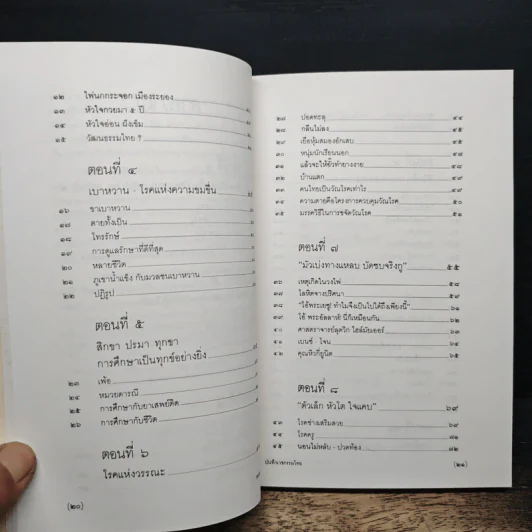 ๑๒ ไพ่นกกระจอก เมืองระยอง
๑๓ หัวใจกวยมา ๕ ปี
๑๔ หัวใจอ่อน ฝังเข็ม
๑๕ วัฒนธรรมไทย ?
ตอนที่ ๔
เบาหวาน - โรคแห่งความขมขื่น
๑๖ ขาเบาหวาน
๑๗ ตายทั้งเป็น
๑๘ โทรรักษ์
๑๙ การดูแลรักษาที่ดีที่สุด
๒๐ หลายชีวิต
๒๑ ภูเขาน้ำแข็ง กับมวลชนเบาหวาน
๒๒ ปฏิรูป
ตอนที่ ๕
สิกขา ปรมา ทุกขา
การศึกษาเป็นทุกข์อย่างยิ่ง
๒๓ เพ้อ
๒๔ หมวยดารณี
๒๕ การศึกษากับยาเสพย์ติด
๒๖ การศึกษากับชีวิต
ตอนที่ ๖
โรคแห่งวรรณะ
(๒๐)
๒๗ ปอดทะลุ ๔๔
๒๘ กลืนไม่ลง ๔๕
๒๙ เยื่อหุ้มสมองอักเสบ ๔๕
๓๐ หนุ่มนักเรียนนอก ๔๖
๓๑ แล้วจะให้อั๊วทำยางงาย ๔๗
๓๒ บ้านแตก ๔๘
๓๓ คนไทยเป็นวัณโรคเท่าไร ๔๙
๓๔ ความตายคือโครงการควบคุมวัณโรค ๕๐
๓๕ มรรควิธีในการขจัดวัณโรค ๕๑
ตอนที่ ๗
"มัวเบ่งทางแหลบ บัดซบจริงกู" ๕๕
๓๖ เหตุเกิดในวงไพ่ ๕๗
๓๗ โลหิตจางปริศนา ๕๙
๓๘ "โอ้พระเยซู! ทำไมจึงเป็นไปได้ถึงเพียงนี้" ๖๑
๓๙ โอ้ พระอัลลาห์! นี่ก็เหมือนกัน ๖๒
๔๐ ศาสตราจารย์ลุดวิก ไฮล์มัยเออร์ ๖๓
๔๑ เบนซ์ - โจน ๖๔
๔๒ คุณหิวกี่ยูนิต ๖๕
ตอนที่ ๘
"ตัวเล็ก หัวโต ใจแคบ" ๖๙
๔๓ โรคช่างเสริมสวย ๗๑
๔๔ โรคครู ๗๑
๔๕ นอนไม่หลับ - ปวดท้อง ๗๒
บันทึกเวชกรรมไทย (๒๑)